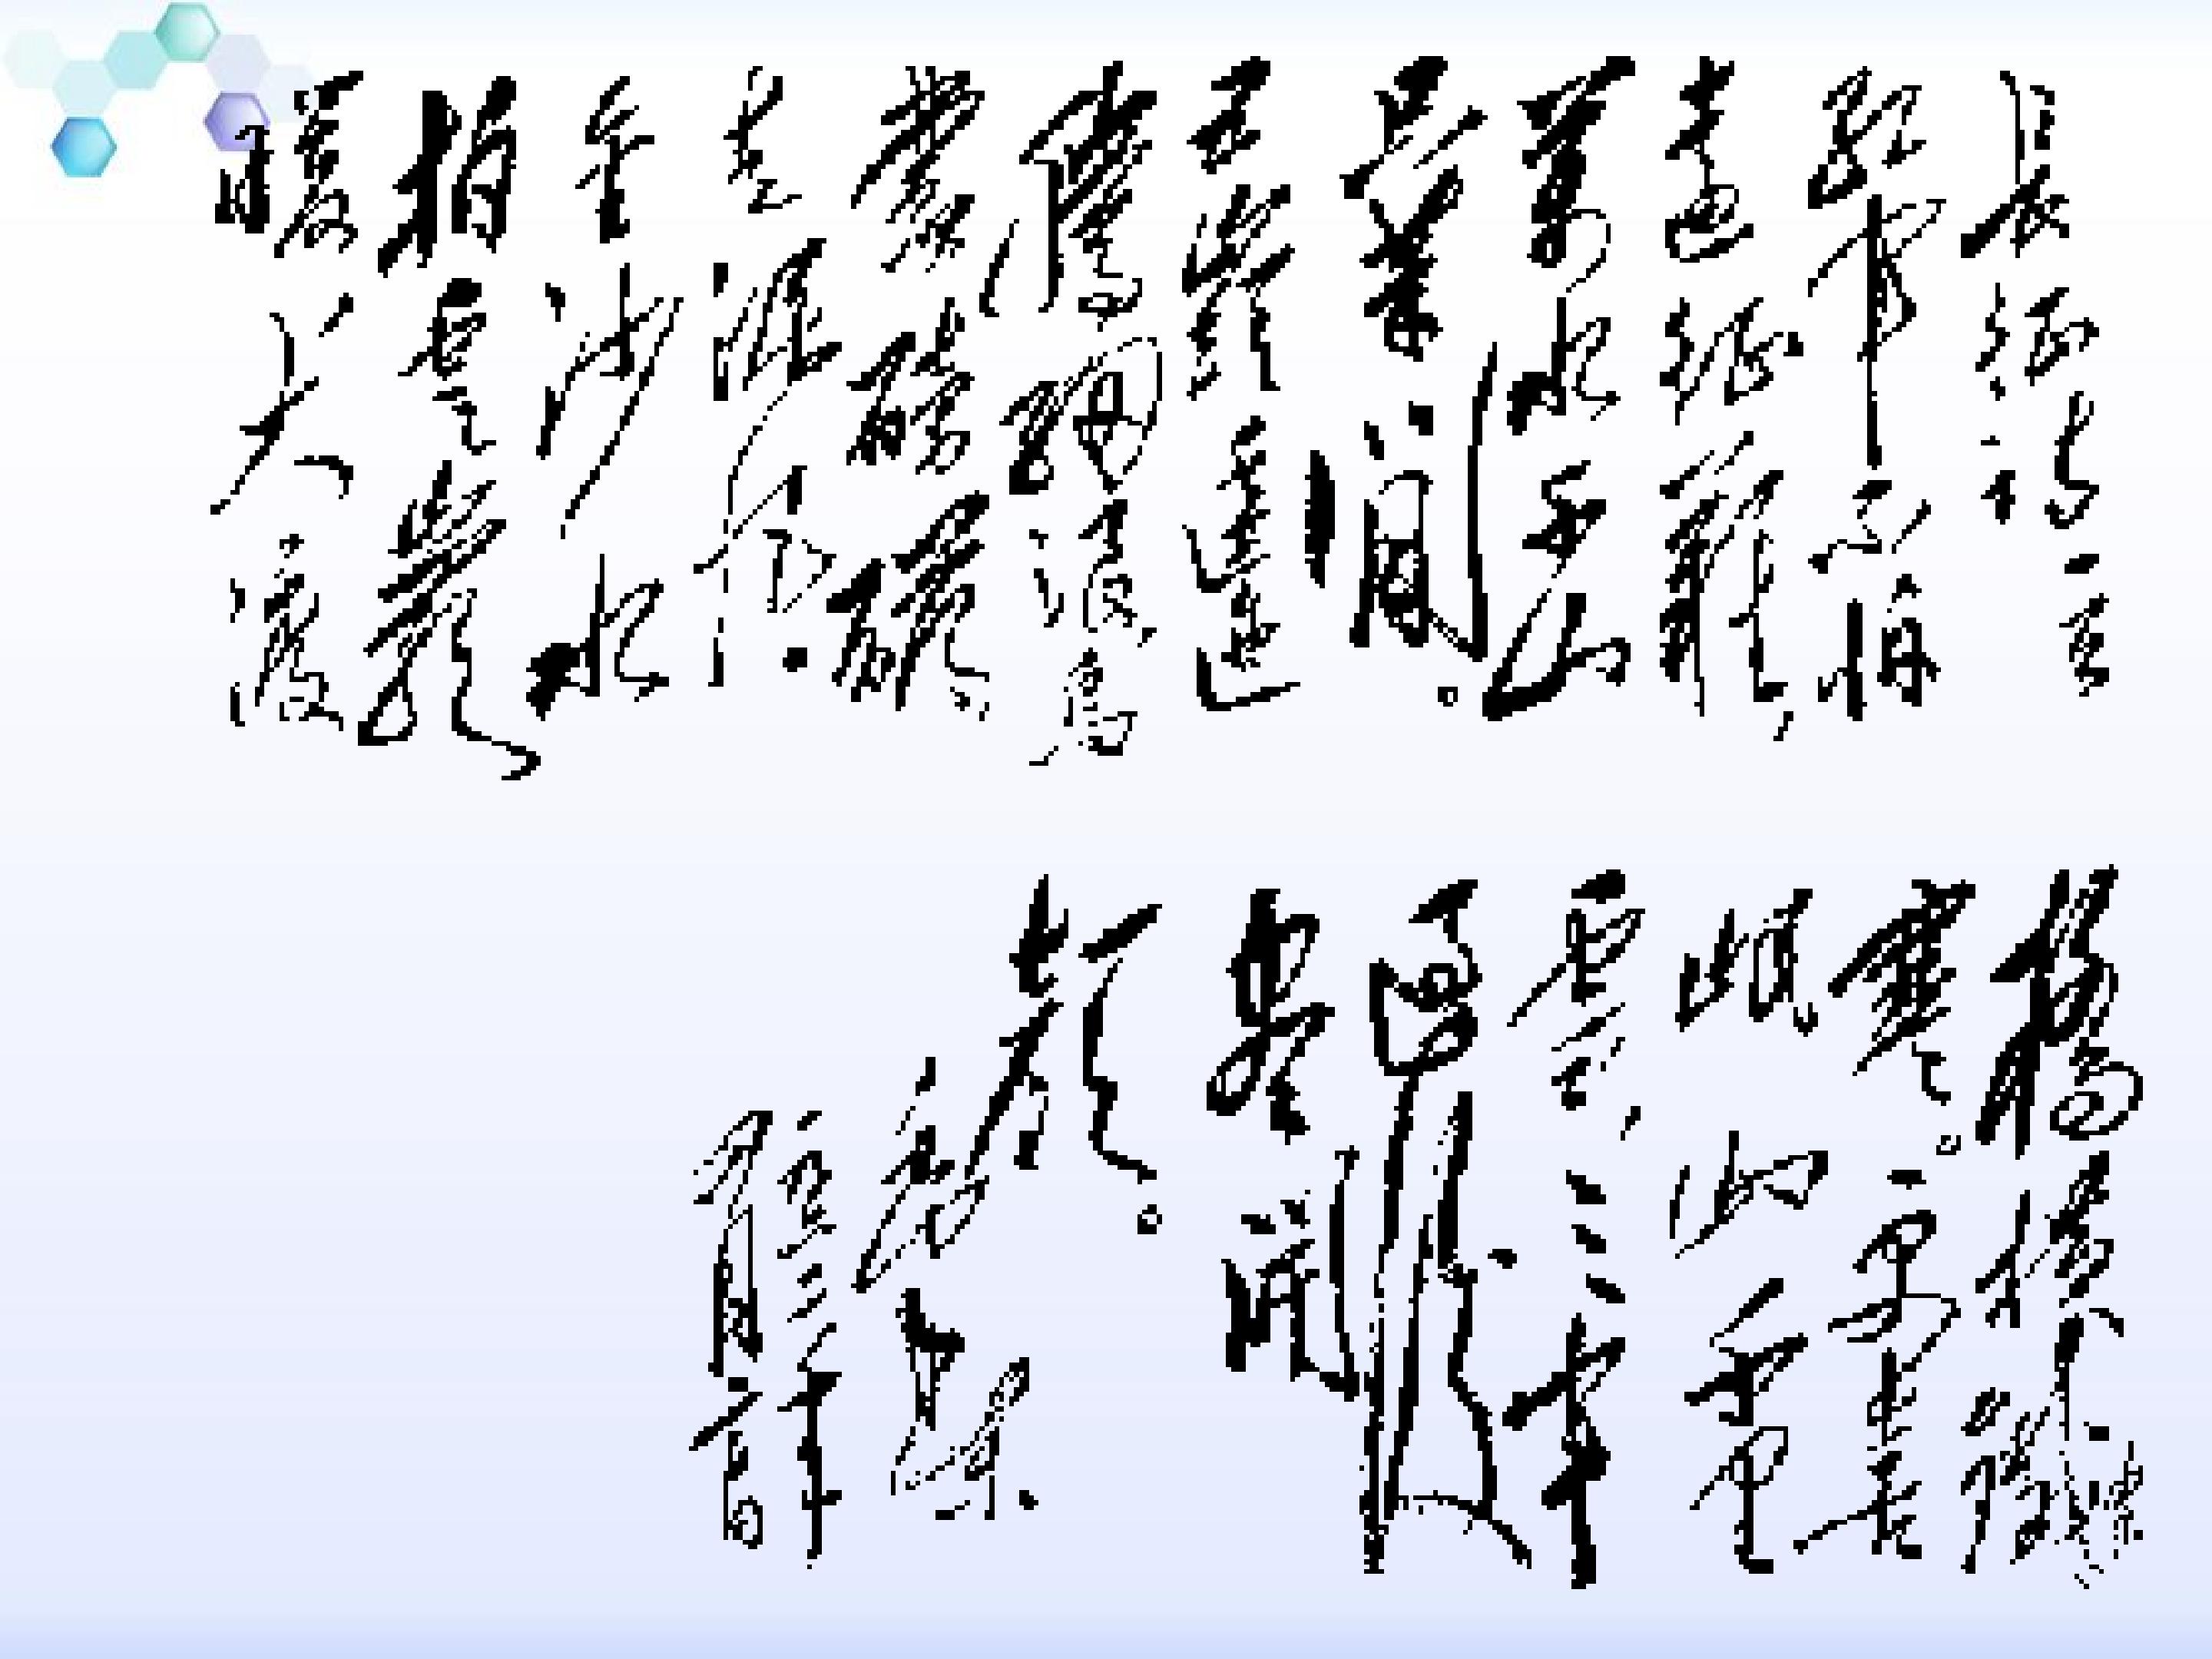 長征詩一首
紅軍不怕
遠征難,
萬水千山
只等閒。
五嶺逶迤
騰細浪,烏
蒙磅礴
走泥丸.
金沙水
拍雲巖
暖大渡
橋橫鐵索
寒。更喜
岷山千里
雪,三軍
過後
盡開
顏。